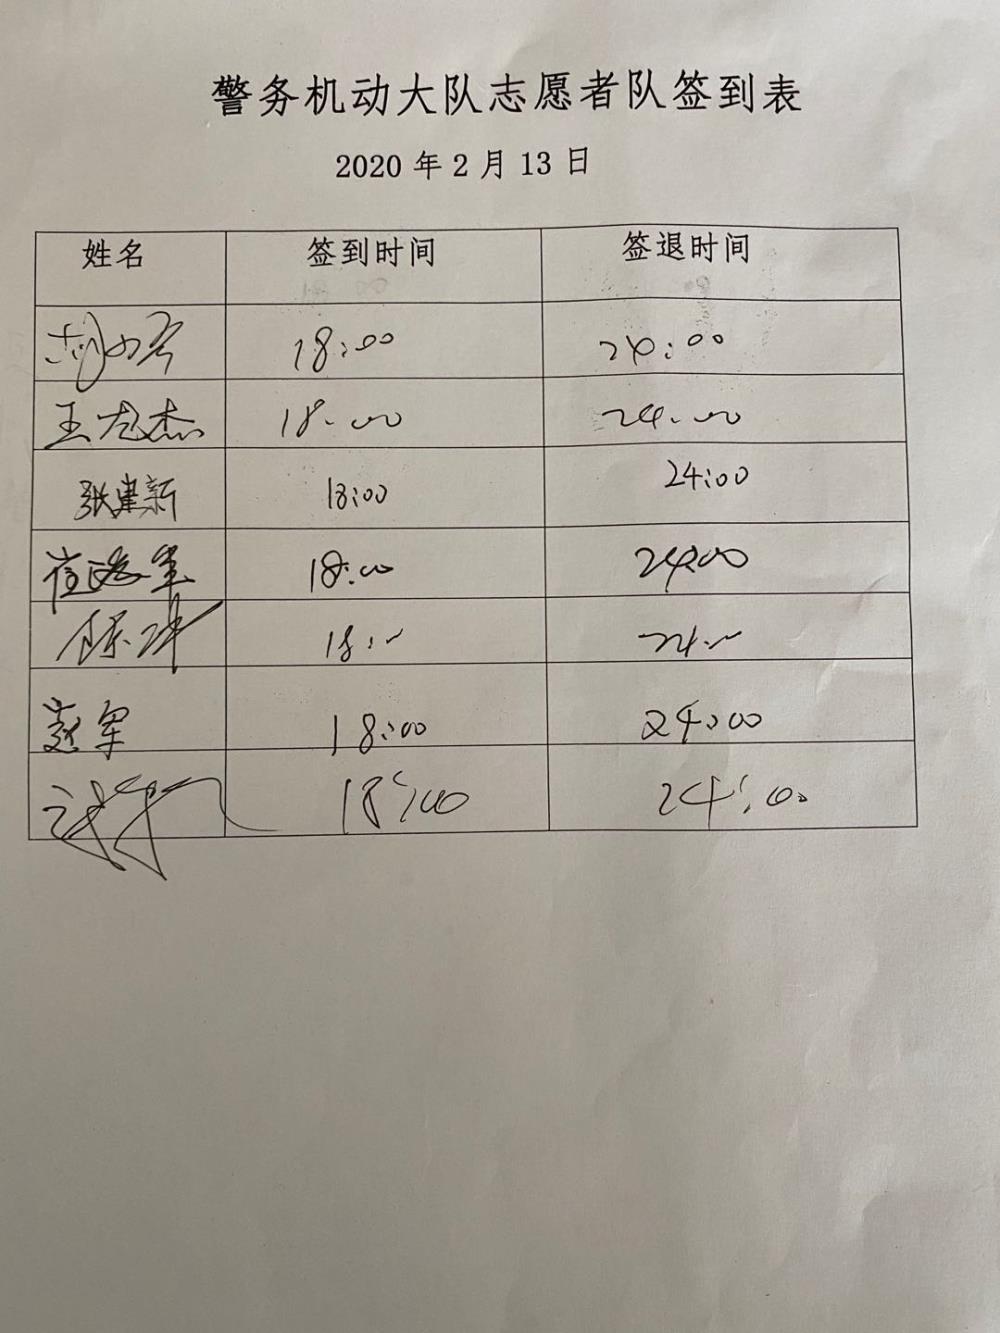 警务机动大队志愿者队签到表
2020 年 2 月 13 日
姓名 签到时间 签退时间
18:00 24:00
王龙杰 18:00 24:00
张建新 18:00 24:00
崔 军 18:00 24:00
18:00 24:00
赵军 18:00 24:00
18:00 24:00